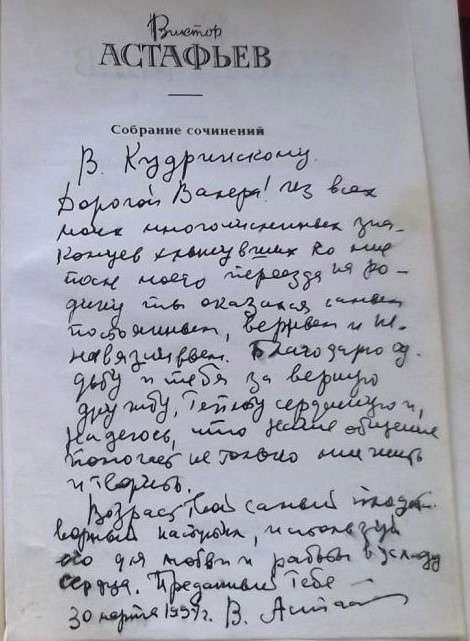 Виктор
АСТАФЬЕВ
Собрание сочинений
В. Кудринскому.
Дорогой Валера! Из всех
моих многочисленных зна-
комцев хлынувших ко мне
после моего переезда на ро-
дину ты оказался самым
постоянным, верным и не-
навязчивым. Благодарю су-
дьбу и тебя за верную
дружбу, теплоту сердечную и,
надеюсь, что наше общение
помогает не только мне жить
и творить.
Возраст твой самый плодот-
ворный наступил, используй
его для любви и работы в усладу
сердца. Преданный тебе
30 марта 1997г. В. Астафьев